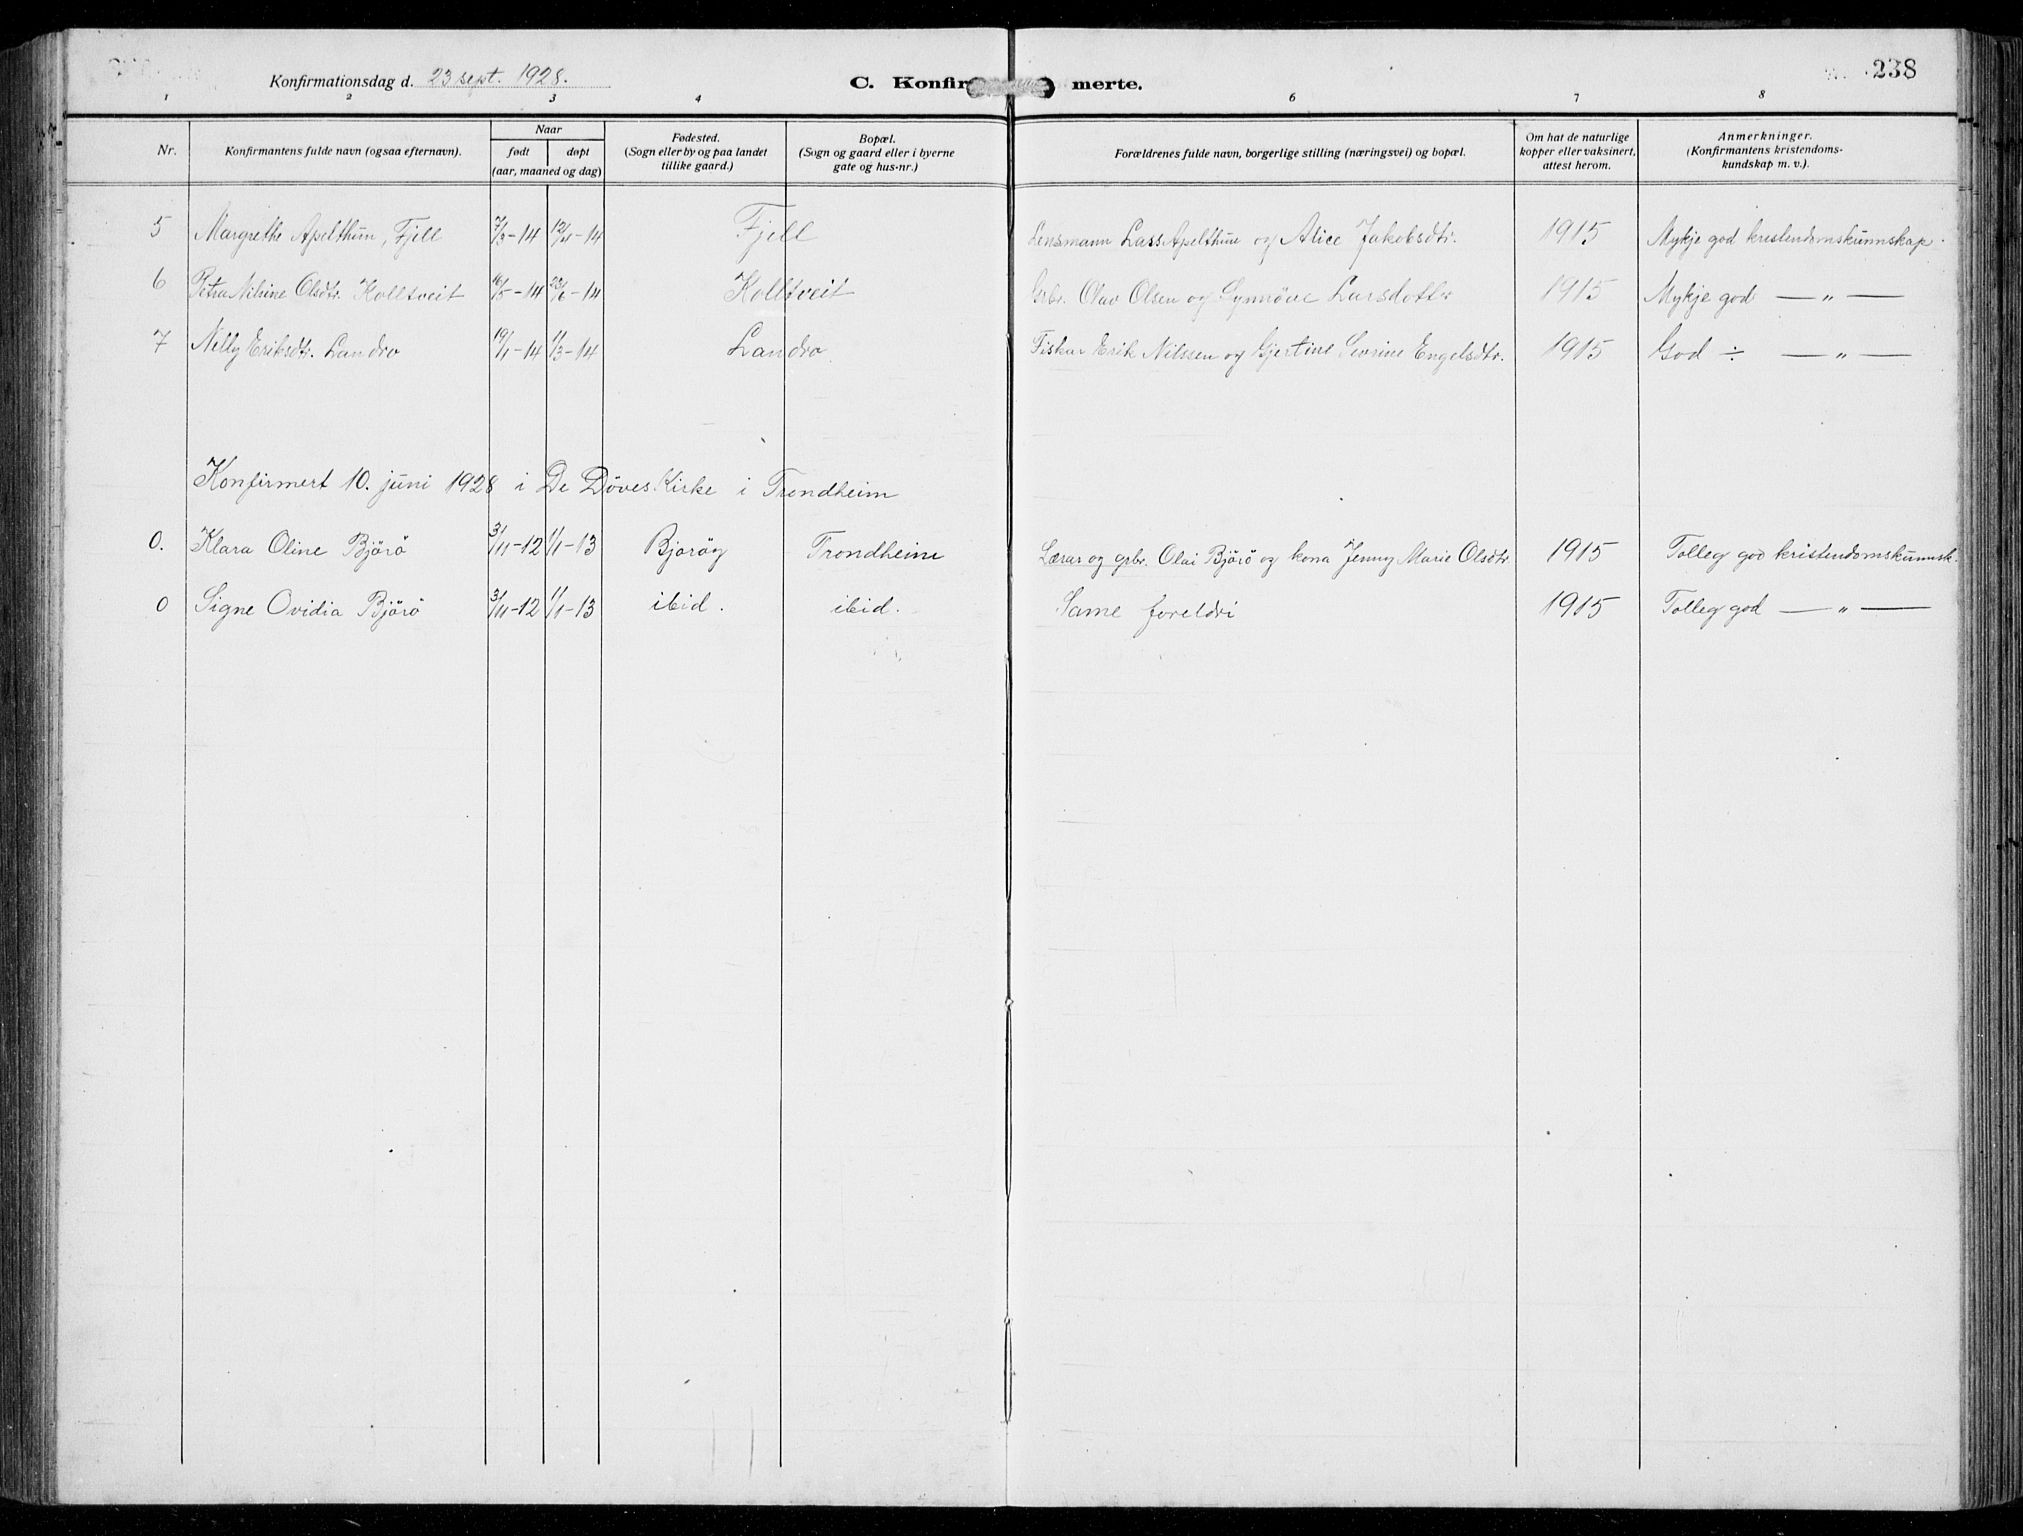 238
Konfirmationsdag d. 23 sept. 1928.
C. Konfir merte.
1 2 3 4 6 7 8
Nr.
Konfirmantens fulde navn (ogsaa efternavn).
Naar
født døpt
(aar, maaned og dag)
Fødested.
(Sogn eller by og paa landet
tillike gaard.)
Bopæl.
(Sogn og gaard eller i byerne
gate og hus-nr.)
Forældrenes fulde navn, borgerlige stilling (næringsvei) og bopæl.
Om hat de naturlige
kopper eller vaksinert,
attest herom.
Anmerkninger.
(Konfirmantens kristendoms-
kundskap m. v.).
5 Margrethe Apelthun, Fjell 7/3-14 12/4-14 Fjell Lensmann Lass Apelthun og Alice Jakobsdtr. 1915 Mykje god kristendomskunnskap.
6 Petra Nilsine Olsdtr. Kolltveit 16/5-14 23/6-14 Kolltveit Grbr. Olav Olsen og Synnöve Larsdotter 1915 Mykje god — " —
7 Nelly Eriksdtr. Landro 19/1-14 1/3-14 Landro. Fiskar Erik Nilssen og Gjertine Sevrine Engelsdtr. 1915 God ÷ — " —
Konfirmert 10. juni 1928 i De Döves Kirke i Trondheim
0. Klara Oline Björö 3/11-12 1/1-13 Bjoröy Trondheim Lærar og grbr. Olai Björö og kona Jenny Marie Olsdtr. 1915 Tolleg god kristendomskunnsk.
0 Signe Ovidia Björö 3/11-12 1/1-13 ibid. ibid. Same foreldri 1915 Tolleg god — " —